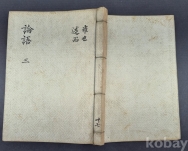 論語 三
雍也
述而
kobay